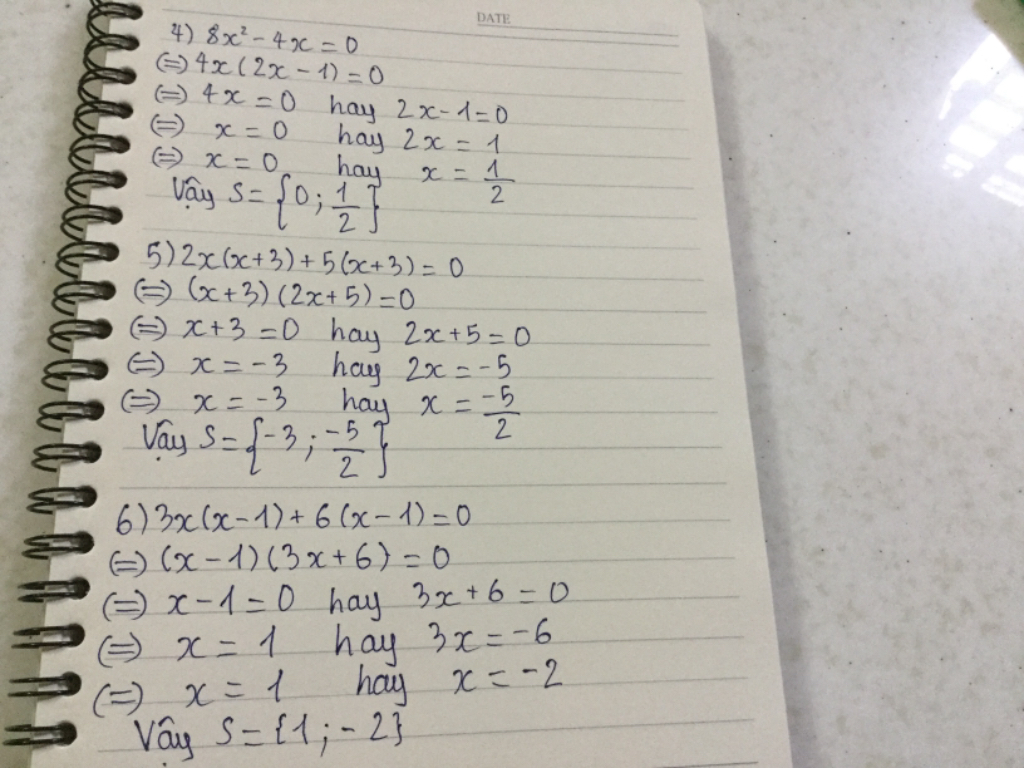 DATE
4) 8x² - 4x = 0
(=) 4x(2x - 1) = 0
(=) 4x = 0 hay 2x - 1 = 0
(=) x = 0 hay 2x = 1
(=) x = 0 hay x = 1/2
Vậy S = {0; 1/2}
5) 2x(x+3) + 5(x+3) = 0
(=) (x+3)(2x+5) = 0
(=) x+3 = 0 hay 2x+5 = 0
(=) x = -3 hay 2x = -5
(=) x = -3 hay x = -5/2
Vậy S = {-3; -5/2}
6) 3x(x-1) + 6(x-1) = 0
(=) (x-1)(3x+6) = 0
(=) x-1 = 0 hay 3x+6 = 0
(=) x = 1 hay 3x = -6
(=) x = 1 hay x = -2
Vậy S = {1; -2}